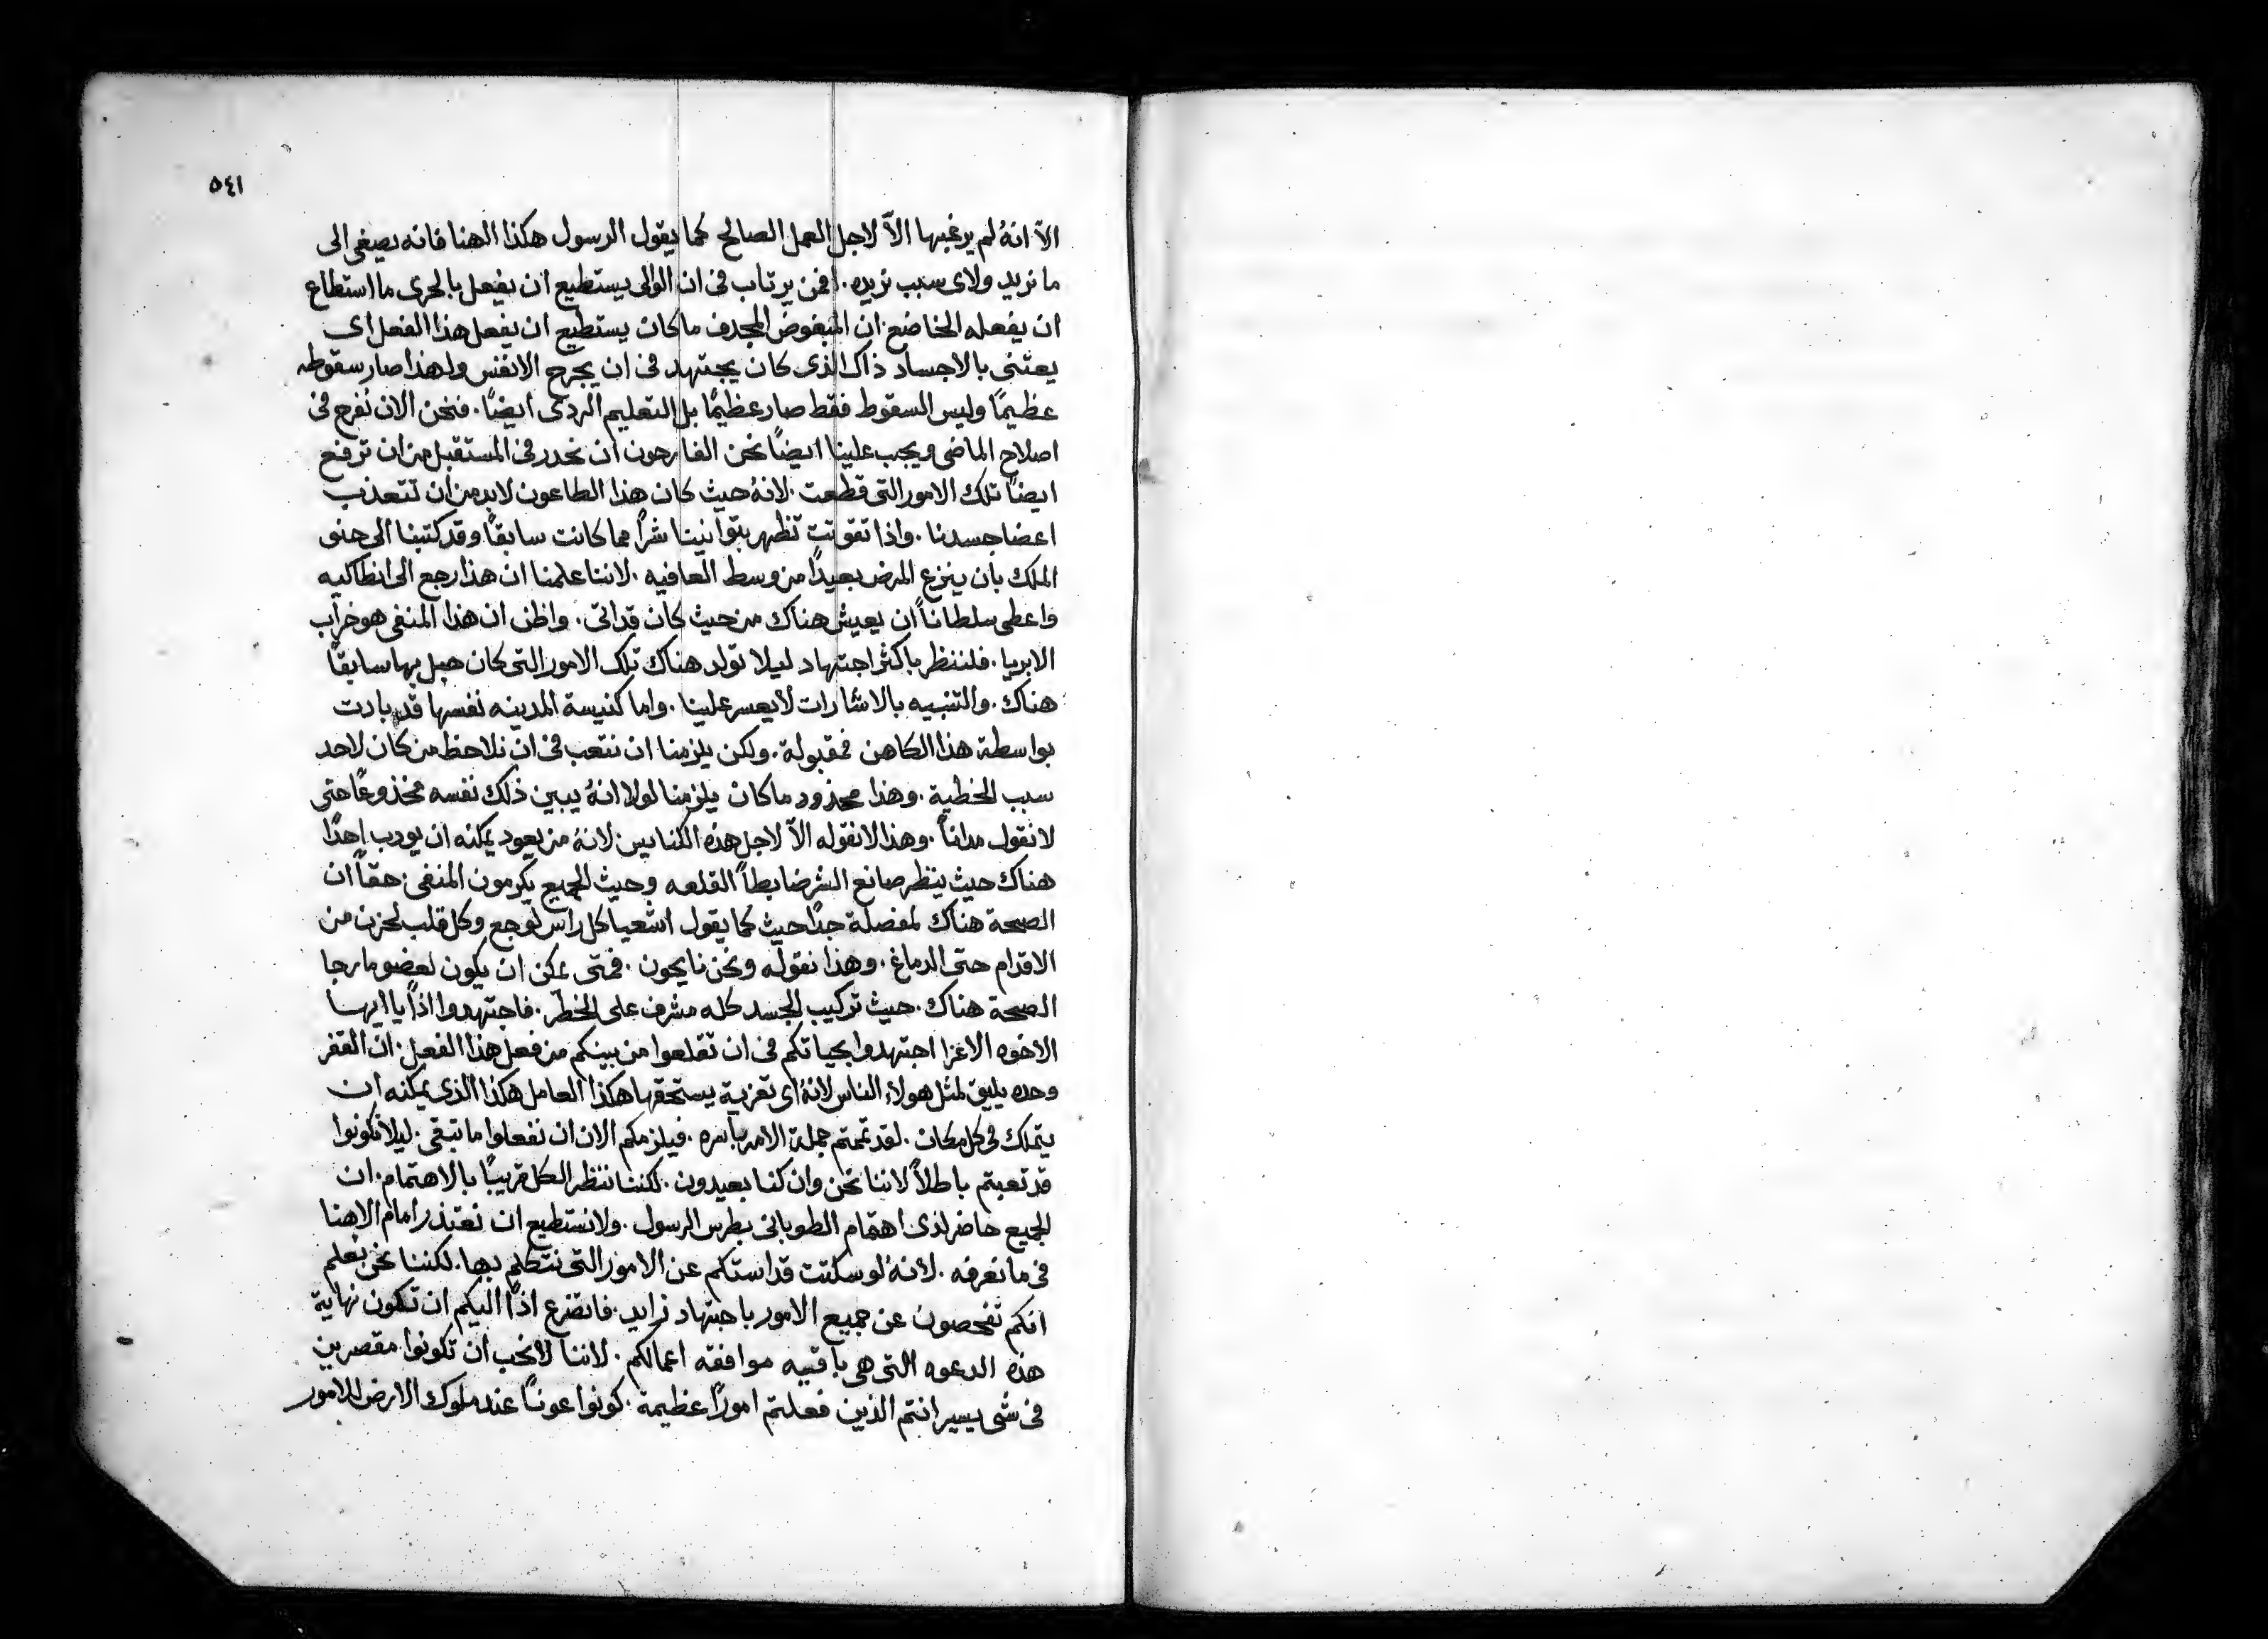 ٥٤١
الاّ انهُ لم يرغبها الاّ لاجل العمل الصالح كما يقول الرسول هكذا الهنا فانه يصغى الى
ما نريد ولاى سبب نريده. افمن يرتاب فى ان الوالى يستطيع ان يفعل بالحرى ما استطاع
ان يفعله الخاضع. ان المبغوض المجدف ما كان يستطيع ان يفعل هذا الفعل اى
يعتنى بالاجساد ذاك الذى كان يجتهد فى ان يجرح الانفس ولهذا صار سقوطه
عظيمًا وليس السقوط فقط صار عظيمًا بل التعليم الردى ايضًا. فنحن الان نفرح فى
اصلاح الماضى ويجب علينا ايضًا نحن الفارحون ان نحدر فى المستقبل من ان ترفع
ايضًا تلك الامور التى قطعت. لانهُ حيث كان هذا الطاعون لابد من ان تتعذب
اعضا جسدنا. واذا تقوتت تظهر بتوانينا شرًا مما كانت سابقًا وقد كتبنا الى حنو
الملك بان ينزع المرض بعيدًا من وسط العافيه. لاننا علمنا ان هذا رجع الى انطاكيه
واعطى سلطانًا ان يعيش هناك من حيث كان قد اتى. واظن ان هذا المنفى هو خراب
الابريا. فلننظر باكثر اجتهاد ليلا تولد هناك تلك الامور التى كان حبل بها سابقًا
هناك. والتنبيه بالاشارات لا يعسر علينا. واما كنيسة المدينه نفسها قد بادت
بواسطة هذا الكاهن فمقبولة. ولكن يلزمنا ان نتعب فى ان نلاحظ من كان لاحد
سبب الخطية. وهذا محذور ما كان يلزمنا لولا انهُ يبين ذلك نفسه مخدوعًا حتى
لا نقول مدانًا. وهذا لا نقوله الاّ لاجل هذه الكنايس لانهُ من يعود يمكنه ان يودب احدًا
هناك حيث ينظر صانع الشر ضابطًا القلعه وحيث الجميع يكرمون المنفى. حقًا ان
الصحة هناك لمعضلة جدًا حيث كما يقول اشعيا كل راس لوجع وكل قلب لحزن من
الاقدام حتى الدماغ. وهذا نقوله ونحن نايحون. فمتى يمكن ان يكون لعضو ما رجا
الصحة هناك. حيث تركيب الجسد كله مشرف على الخطر. فاجتهدوا اذًا يا ايها
الاخوه الاعزا اجتهدوا بحياتكم فى ان تقلعوا من بينكم من فعل هذا الفعل. ان القفر
وحده يليق لمثل هولاء الناس لانهُ اى تعزية يستحقها هكذا العامل هكذا الذى يمكنه ان
يتملك فى كل مكان. لقد تممتم جملة الامر باسره. فيلزمكم الان ان تفعلوا ما تبقى. ليلا تكونوا
قد تعبتم باطلاً لاننا نحن وان كنا بعيدون. لكننا ننظر الكل قريبًا بالاهتمام. ان
الجميع حاضر لذى اهتمام الطوبانى بطرس الرسول. ولا نستطيع ان نعتذر امام الاهنا
فى ما نعرفه. لانهُ لو سكتت قداستكم عن الامور التى نتكلم بها. لكننا نحن نعلم
انكم تفحصون عن جميع الامور باجتهاد زايد. فانضرع اذًا اليكم ان تكون نهاية
هذه الدعوه التى هى باقيه موافقه اعمالكم. لاننا لا نحب ان تكونوا مقصرين
فى شى يسير انتم الذين فعلتم امورًا عظيمة. كونوا عونًا عند ملوك الارض للامور